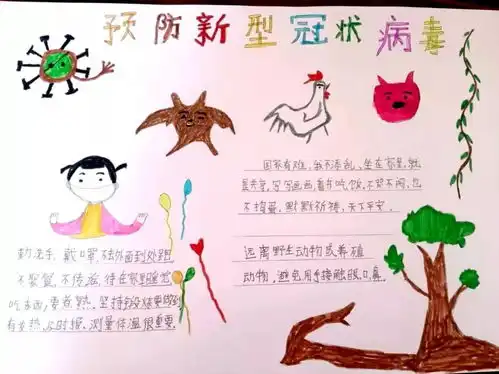 预防新型冠状病毒
国家有难,我不添乱、坐在家里,就
是贡献,写写画画,看书吃饭,不哭不闹,也
不捣蛋,默默祈祷,天下平安.
勤洗手,戴口罩,不去外面到处跑
不聚餐,不传谣,待在家里
吃东西,要煮熟,坚持锻炼
有发热,及时报,测量体温很重要.
远离野生动物或养殖
动物,避免用手接触眼口鼻